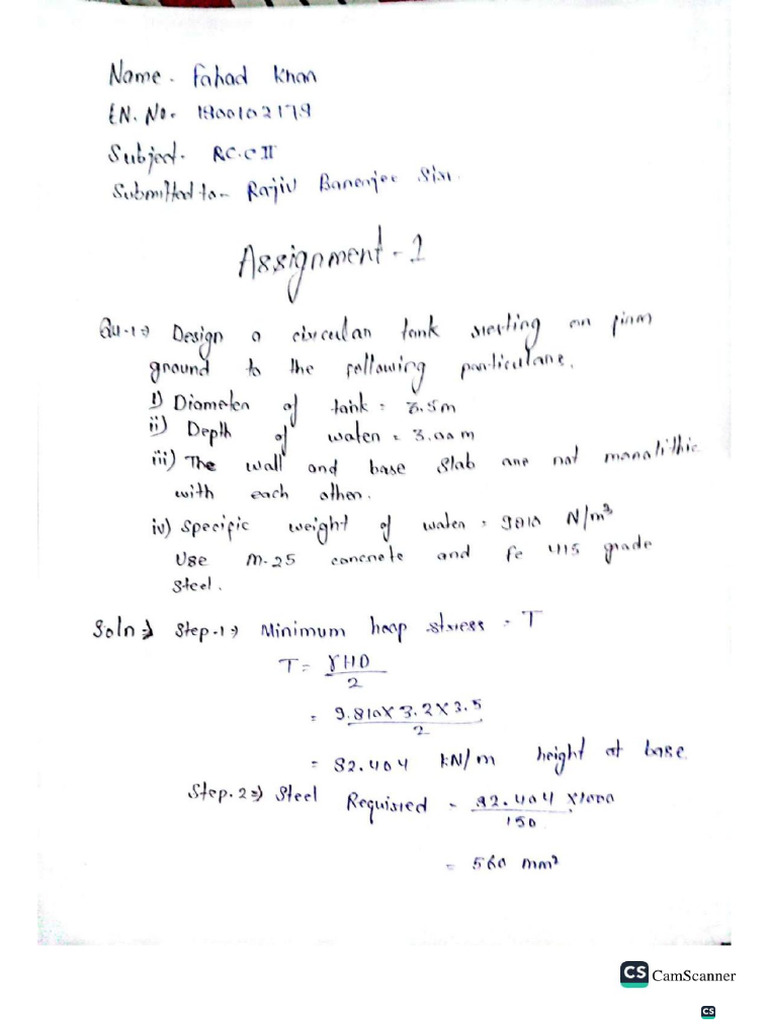 Name - Fahad Khan
EN. No. 1800102179
Subject - R.C.C II
Submitted to - Rajiv Banerjee Sir.
Assignment - 1
Qu-1 ⇒ Design a circular tank resting on firm
ground to the following particulars.
i) Diameter of tank = 3.5m
ii) Depth of water = 3.00 m
iii) The wall and base slab are not monolithic
with each other.
iv) Specific weight of water = 9810 N/m³
Use M-25 concrete and fe 415 grade
steel.
Soln ⇒ Step-1 ⇒ Minimum hoop stress = T
T = γHD / 2
= 9.810 X 3.2 X 3.5 / 2
= 82.404 kN/m height at base.
Step.2 ⇒ Steel Required = 82.404 X 1000 / 150
= 560 mm²
CS CamScanner
CS